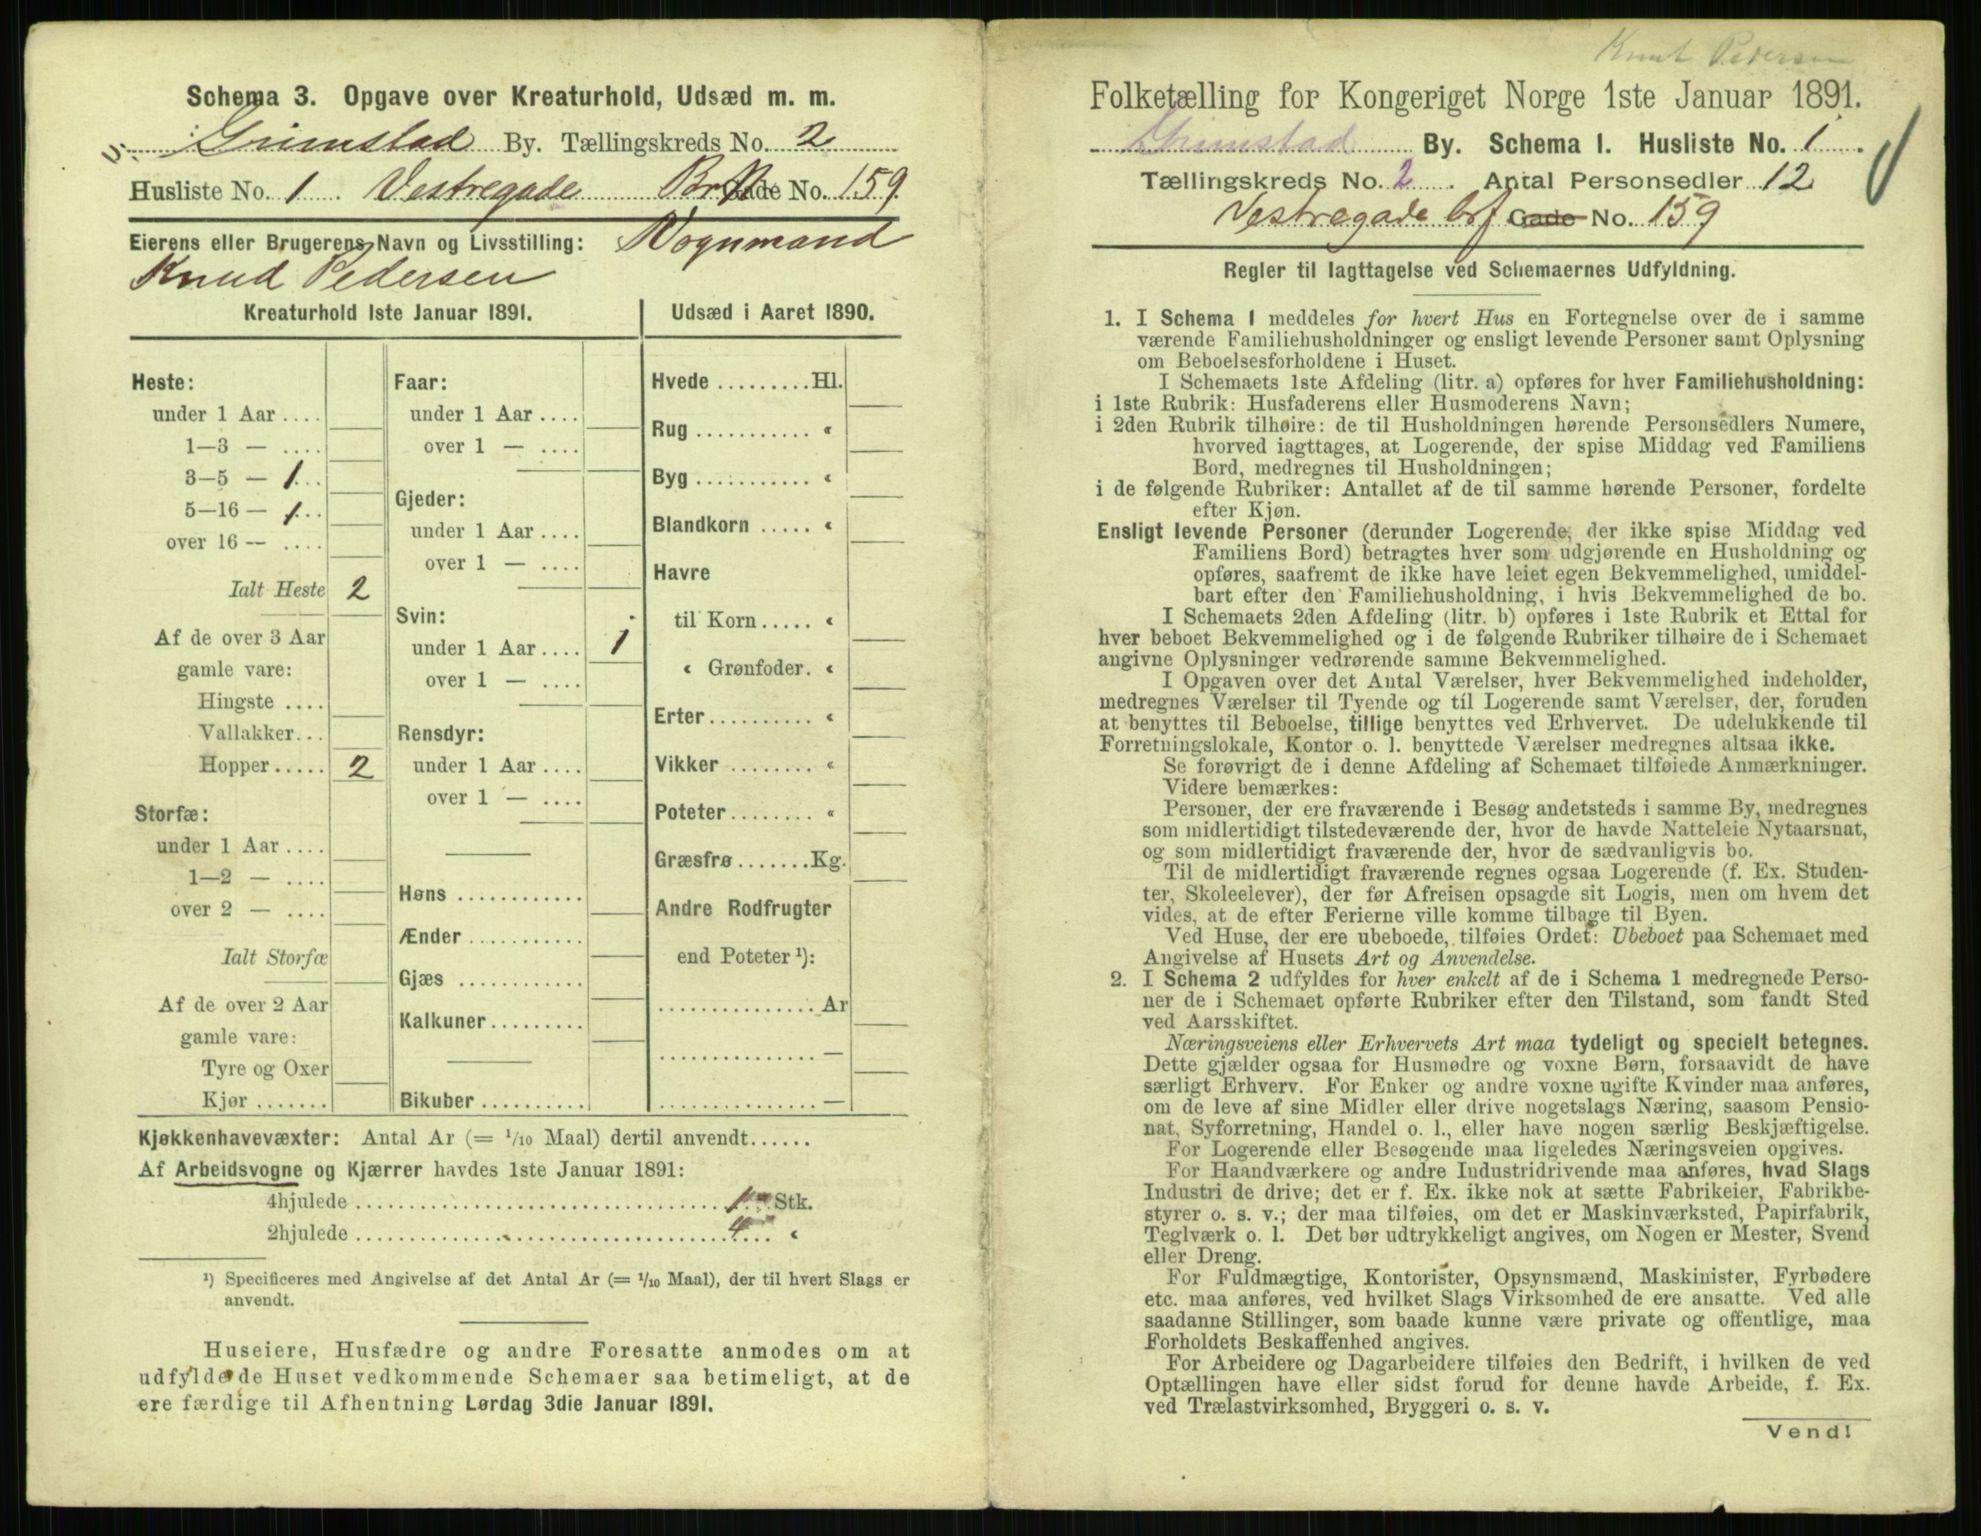 Schema 3. Opgave over Kreaturhold, Udsæd m. m.
Grimstad By. Tællingskreds No. 2
Husliste No. 1 Vestregade Gade No. 159
Eierens eller Brugerens Navn og Livsstilling: Vognmand
Knud Pedersen
Kreaturhold 1ste Januar 1891.
Heste:
under 1 Aar ....
1—3 — ....
3—5 — 1
5—16 — 1
over 16 — ....
Ialt Heste 2
Af de over 3 Aar
gamle vare:
Hingste ....
Vallakker...
Hopper ..... 2
Storfæ:
under 1 Aar ....
1—2 — ....
over 2 — ....
Ialt Storfæ
Af de over 2 Aar
gamle vare:
Tyre og Oxer
Kjør .......
Faar:
under 1 Aar ....
over 1 — ....
Gjeder:
under 1 Aar ....
over 1 — ....
Svin:
under 1 Aar .... 1
over 1 — ....
Rensdyr:
under 1 Aar ....
over 1 — ....
Høns ............
Ænder ...........
Gjæs ............
Kalkuner.........
Bikuber ..........
Udsæd i Aaret 1890.
Hvede .........Hl.
Rug ........... "
Byg ........... "
Blandkorn ..... "
Havre
til Korn ..... "
" Grønfoder. "
Erter.......... "
Vikker ........ "
Poteter........ "
Græsfrø .......Kg.
Andre Rodfrugter
end Poteter ¹):
............... Ar
............... —
............... —
Kjøkkenhavevæxter: Antal Ar (= 1/10 Maal) dertil anvendt......
Af Arbeidsvogne og Kjærrer havdes 1ste Januar 1891:
4hjulede .................................... 1 Stk.
2hjulede .................................... 4 "
¹) Specificeres med Angivelse af det Antal Ar (= 1/10 Maal), der til hvert Slags er
anvendt.
Huseiere, Husfædre og andre Foresatte anmodes om at
udfylde de Huset vedkommende Schemaer saa betimeligt, at de
ere færdige til Afhentning Lørdag 3die Januar 1891.
Knut Pedersen
Folketælling for Kongeriget Norge 1ste Januar 1891.
Grimstad By. Schema I. Husliste No. 1
Tællingskreds No. 2 . Antal Personsedler 12
Vestregade Gade No. 159
Regler til Iagttagelse ved Schemaernes Udfyldning.
1. I Schema 1 meddeles for hvert Hus en Fortegnelse over de i samme
værende Familiehusholdninger og ensligt levende Personer samt Oplysning
om Beboelsesforholdene i Huset.
I Schemaets 1ste Afdeling (litr. a) opføres for hver Familiehusholdning:
i 1ste Rubrik: Husfaderens eller Husmoderens Navn;
i 2den Rubrik tilhøire: de til Husholdningen hørende Personsedlers Numere,
hvorved iagttages, at Logerende, der spise Middag ved Familiens
Bord, medregnes til Husholdningen;
i de følgende Rubriker: Antallet af de til samme hørende Personer, fordelte
efter Kjøn.
Ensligt levende Personer (derunder Logerende, der ikke spise Middag ved
Familiens Bord) betragtes hver som udgjørende en Husholdning og
opføres, saafremt de ikke have leiet egen Bekvemmelighed, umiddel-
bart efter den Familiehusholdning, i hvis Bekvemmelighed de bo.
I Schemaets 2den Afdeling (litr. b) opføres i 1ste Rubrik et Ettal for
hver beboet Bekvemmelighed og i de følgende Rubriker tilhøire de i Schemaet
angivne Oplysninger vedrørende samme Bekvemmelighed.
I Opgaven over det Antal Værelser, hver Bekvemmelighed indeholder,
medregnes Værelser til Tyende og til Logerende samt Værelser, der, foruden
at benyttes til Beboelse, tillige benyttes ved Erhvervet. De udelukkende til
Forretningslokale, Kontor o. l. benyttede Værelser medregnes altsaa ikke.
Se forøvrigt de i denne Afdeling af Schemaet tilføiede Anmærkninger.
Videre bemærkes:
Personer, der ere fraværende i Besøg andetsteds i samme By, medregnes
som midlertidigt tilstedeværende der, hvor de havde Natteleie Nytaarsnat,
og som midlertidigt fraværende der, hvor de sædvanligvis bo.
Til de midlertidigt fraværende regnes ogsaa Logerende (f. Ex. Studen-
ter, Skoleelever), der før Afreisen opsagde sit Logis, men om hvem det
vides, at de efter Ferierne ville komme tilbage til Byen.
Ved Huse, der ere ubeboede, tilføies Ordet: Ubeboet paa Schemaet med
Angivelse af Husets Art og Anvendelse.
2. I Schema 2 udfyldes for hver enkelt af de i Schema 1 medregnede Perso-
ner de i Schemaet opførte Rubriker efter den Tilstand, som fandt Sted
ved Aarsskiftet.
Næringsveiens eller Erhvervets Art maa tydeligt og specielt betegnes.
Dette gjælder ogsaa for Husmødre og voxne Børn, forsaavidt de have
særligt Erhverv. For Enker og andre voxne ugifte Kvinder maa anføres,
om de leve af sine Midler eller drive nogetslags Næring, saasom Pensio-
nat, Syforretning, Handel o. l., eller have nogen særlig Beskjæftigelse.
For Logerende eller Besøgende maa ligeledes Næringsveien opgives.
For Haandværkere og andre Industridrivende maa anføres, hvad Slags
Industri de drive; det er f. Ex. ikke nok at sætte Fabrikeier, Fabrikbe-
styrer o. s. v.; der maa tilføies, om det er Maskinværksted, Papirfabrik,
Teglværk o. l. Det bør udtrykkeligt angives, om Nogen er Mester, Svend
eller Dreng.
For Fuldmægtige, Kontorister, Opsynsmænd, Maskinister, Fyrbødere
etc. maa anføres, ved hvilket Slags Virksomhed de ere ansatte. Ved alle
saadanne Stillinger, som baade kunne være private og offentlige, maa
Forholdets Beskaffenhed angives.
For Arbeidere og Dagarbeidere tilføies den Bedrift, i hvilken de ved
Optællingen have eller sidst forud for denne havde Arbeide, f. Ex.
ved Trælastvirksomhed, Bryggeri o. s. v.
Vend!